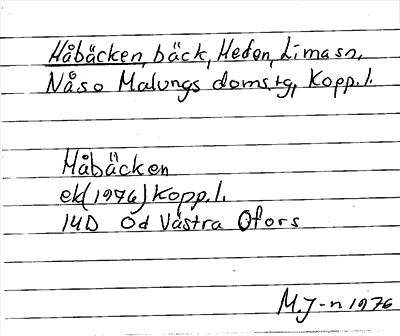 Håbäcken, bäck, Heden, Limasn,
Nåso Malungs doms.tg, Kopp.l.
Håbäcken
ek(1976)Kopp.l.
14D Öd Västra Ofors
M.J-n 1976